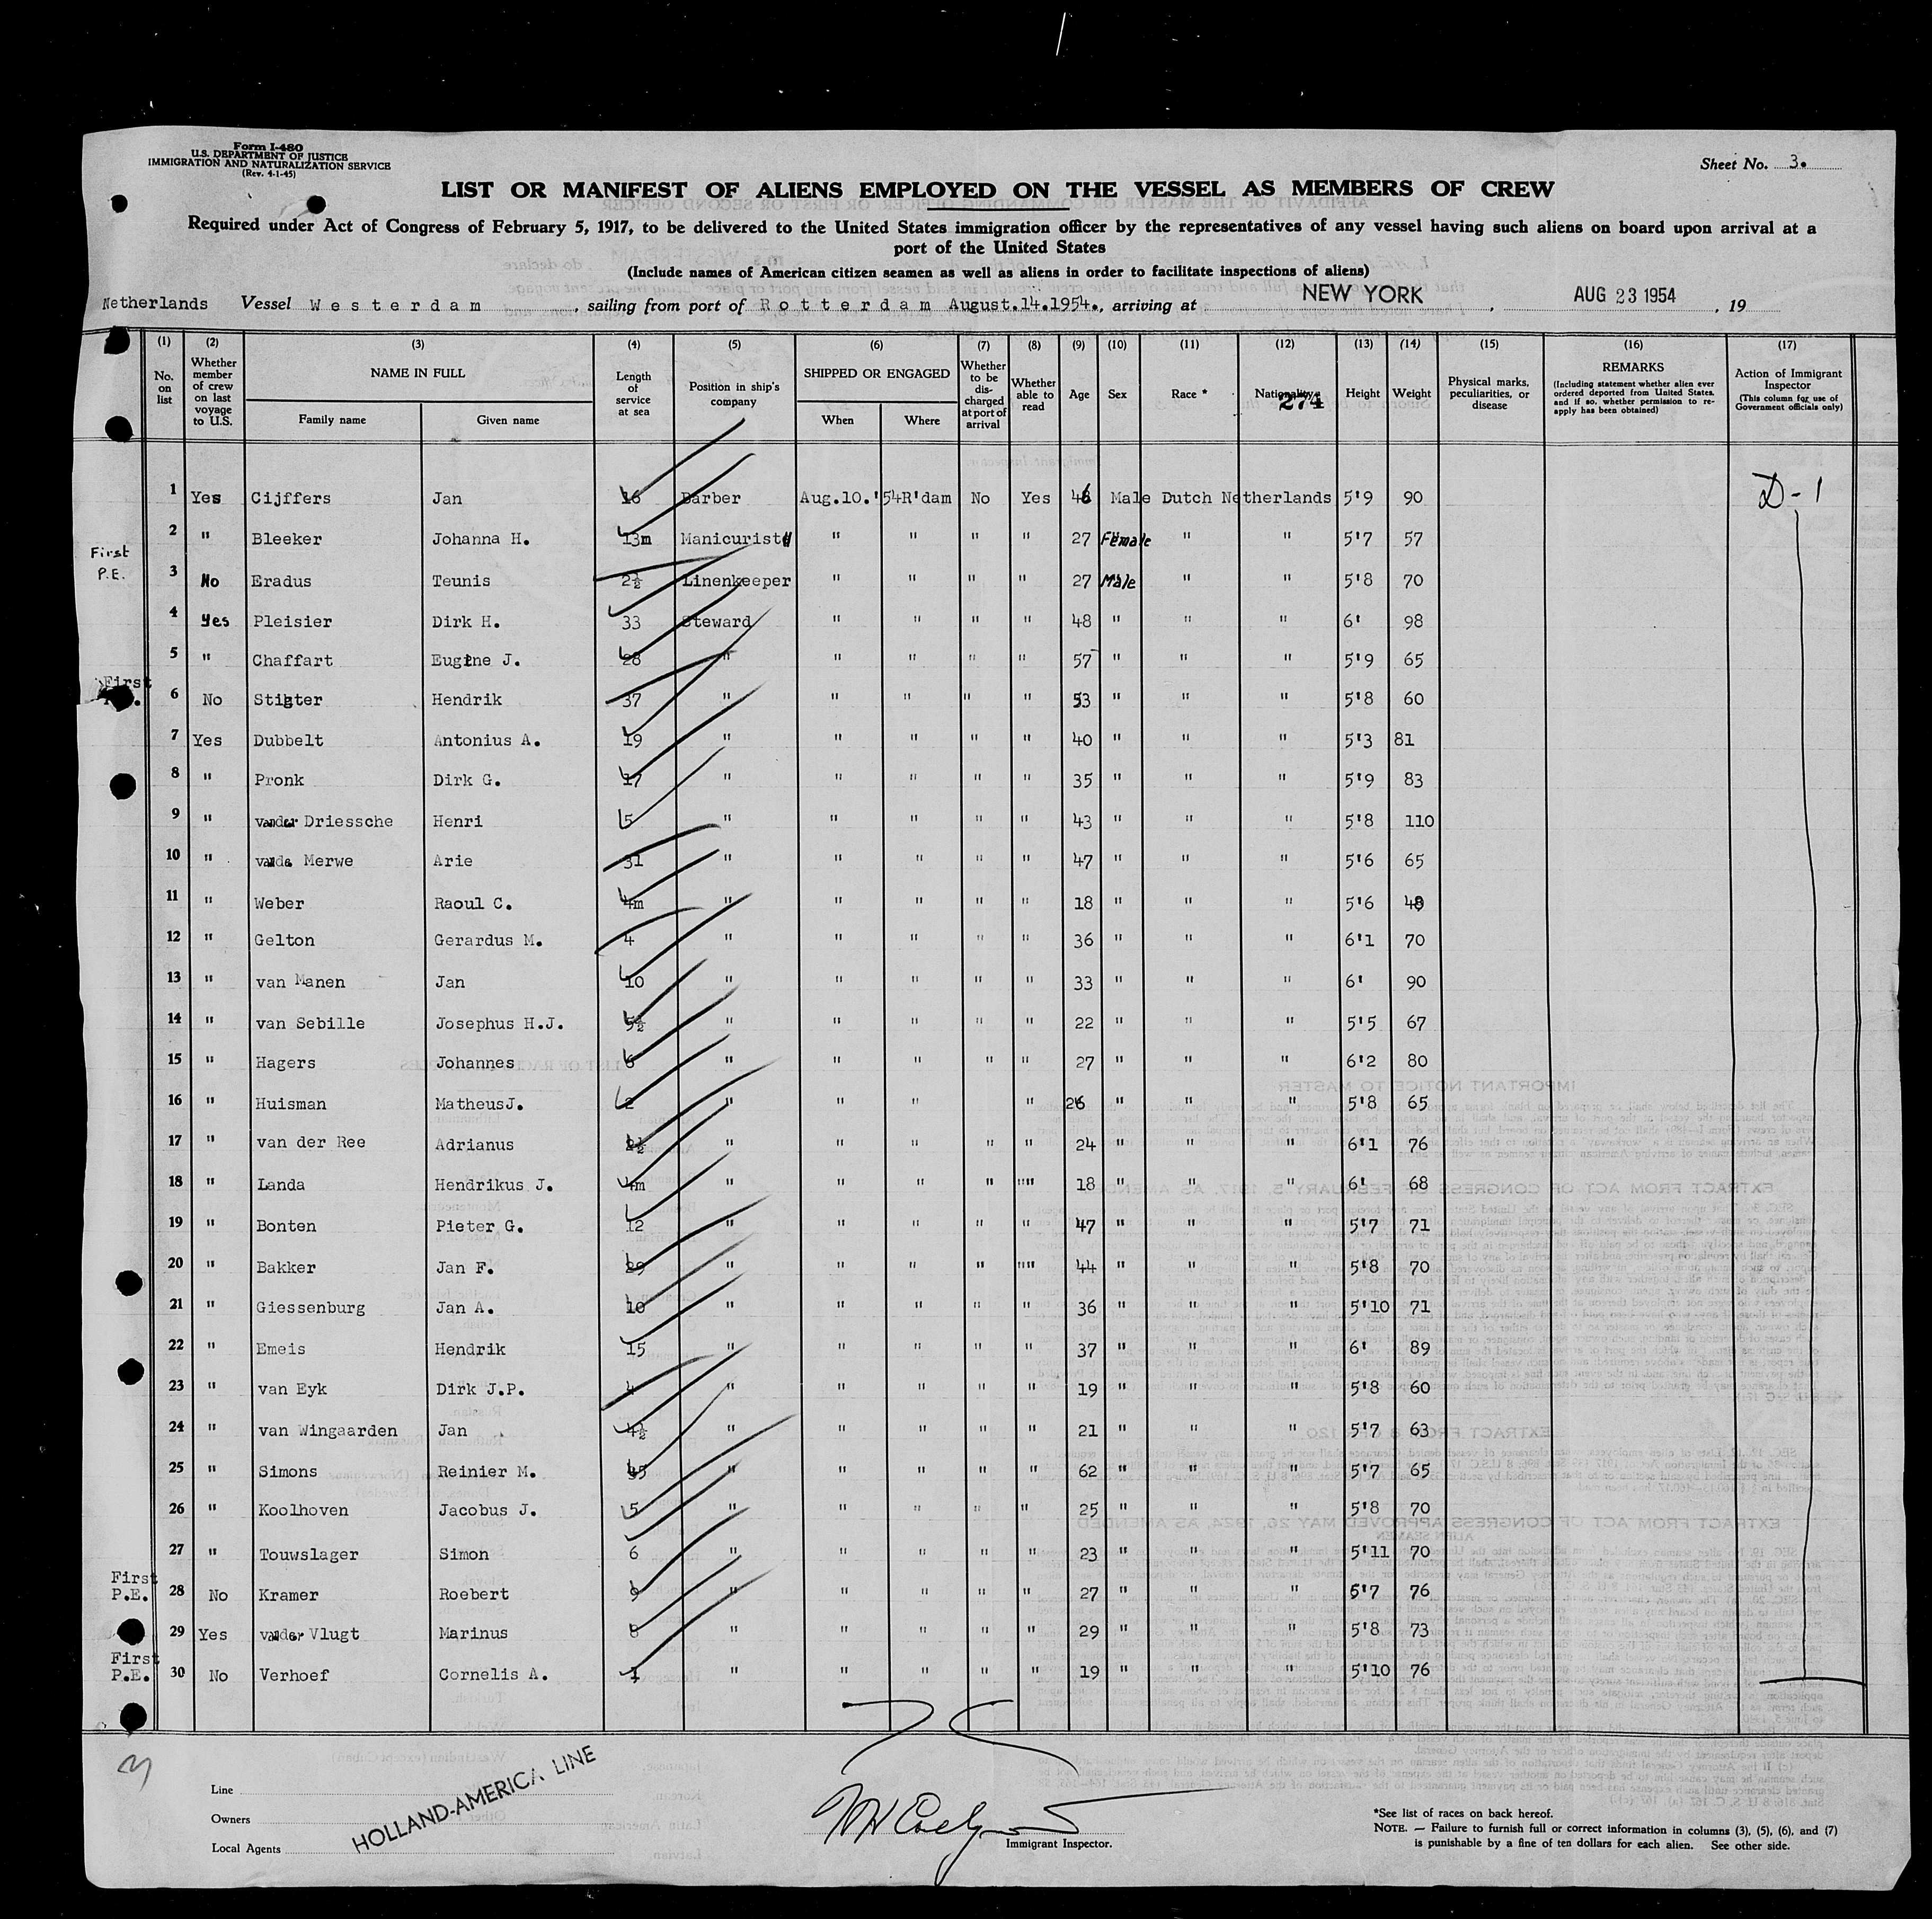 Form I-480
U.S. DEPARTMENT OF JUSTICE
IMMIGRATION AND NATURALIZATION SERVICE
(Rev. 4-1-45)
Sheet No. 3.
LIST OR MANIFEST OF ALIENS EMPLOYED ON THE VESSEL AS MEMBERS OF CREW
Required under Act of Congress of February 5, 1917, to be delivered to the United States immigration officer by the representatives of any vessel having such aliens on board upon arrival at a
port of the United States
(Include names of American citizen seamen as well as aliens in order to facilitate inspections of aliens)
Netherlands Vessel Westerdam, sailing from port of Rotterdam August.14.1954., arriving at NEW YORK, AUG 23 1954, 19
(1) (2) (3) (4) (5) (6) (7) (8) (9) (10) (11) (12) (13) (14) (15) (16) (17)
No. on list Whether member of crew on last voyage to U.S. NAME IN FULL Family name Given name Length of service at sea Position in ship's company SHIPPED OR ENGAGED When Where Whether to be discharged at port of arrival Whether able to read Age Sex Race * Nationality 274 Height Weight Physical marks, peculiarities, or disease REMARKS (Including statement whether alien ever ordered deported from United States, and if so, whether permission to reapply has been obtained) Action of Immigrant Inspector (This column for use of Government officials only)
1 Yes Cijffers Jan 16 Barber Aug.10.'54 R'dam No Yes 48 Male Dutch Netherlands 5'9 90 D-1
2 " Bleeker Johanna H. 13m Manicurist " " " " 27 Female " " 5'7 57
First P.E. 3 No Eradus Teunis 2½ Linenkeeper " " " " 27 Male " " 5'8 70
4 Yes Pleisier Dirk H. 33 Steward " " " " 48 " " " 6' 98
5 " Chaffart Eugène J. 28 " " " " " 57 " " " 5'9 65
First 6 No Stigter Hendrik 37 " " " " " 53 " " " 5'8 60
7 Yes Dubbelt Antonius A. 19 " " " " " 40 " " " 5'3 81
8 " Pronk Dirk G. 17 " " " " " 35 " " " 5'9 83
9 " vander Driessche Henri 5 " " " " " 43 " " " 5'8 110
10 " vande Merwe Arie 31 " " " " " 47 " " " 5'6 65
11 " Weber Raoul C. 4m " " " " " 18 " " " 5'6 48
12 " Gelton Gerardus M. 4 " " " " " 36 " " " 6'1 70
13 " van Manen Jan 10 " " " " " 33 " " " 6' 90
14 " van Sebille Josephus H.J. 5½ " " " " " 22 " " " 5'5 67
15 " Hagers Johannes 6 " " " " " 27 " " " 6'2 80
16 " Huisman MatheusJ. 2 " " " " 26 " " " 5'8 65
17 " van der Ree Adrianus 2½ " " " " " 24 " " " 6'1 76
18 " Landa Hendrikus J. 4m " " " " "" 18 " " " 6' 68
19 " Bonten Pieter G. 12 " " " " " 47 " " " 5'7 71
20 " Bakker Jan F. 29 " " " " "" 44 " " " 5'8 70
21 " Giessenburg Jan A. 10 " " " " " 36 " " " 5'10 71
22 " Emeis Hendrik 15 " " " " " 37 " " " 6' 89
23 " van Eyk Dirk J.P. 4 " " " " " 19 " " " 5'8 60
24 " van Wingaarden Jan 4½ " " " " " 21 " " " 5'7 63
25 " Simons Reinier M. 45 " " " " " 62 " " " 5'7 65
26 " Koolhoven Jacobus J. 5 " " " " " 25 " " " 5'8 70
27 " Touwslager Simon 6 " " " " " 23 " " " 5'11 70
First P.E. 28 No Kramer Roebert 9 " " " " " 27 " " " 5'7 76
29 Yes vander Vlugt Marinus 8 " " " " " 29 " " " 5'8 73
First P.E. 30 No Verhoef Cornelis A. 1 " " " " " 19 " " " 5'10 76
Line
Owners
Local Agents
HOLLAND-AMERICA LINE
Immigrant Inspector.
*See list of races on back hereof.
NOTE. — Failure to furnish full or correct information in columns (3), (5), (6), and (7)
is punishable by a fine of ten dollars for each alien. See other side.